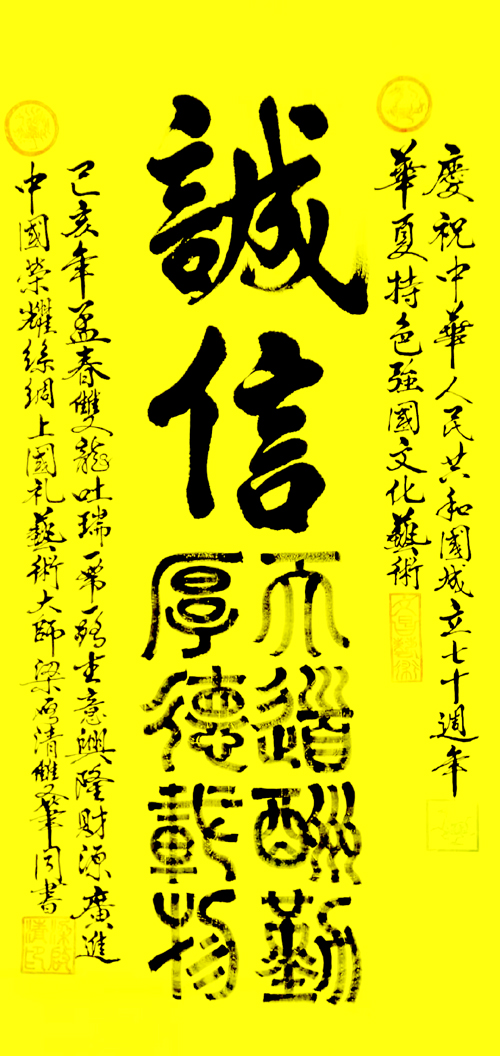 慶祝中華人民共和國成立七十週年
華夏特色強國文化藝術
誠信
天道酬勤
厚德載物
己亥年孟春雙龍吐瑞一帶一路生意興隆財源廣進
中國榮耀絲綢上國礼藝術大師梁启清雙筆同書